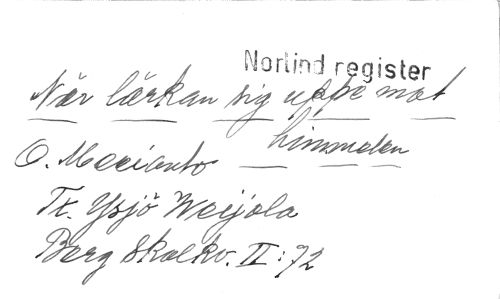 Norlind register
När lärkan sig uppe mot
himmelen
O. Merikanto
Tx. Yrjö Weijola
Berg Skolkv. II:72